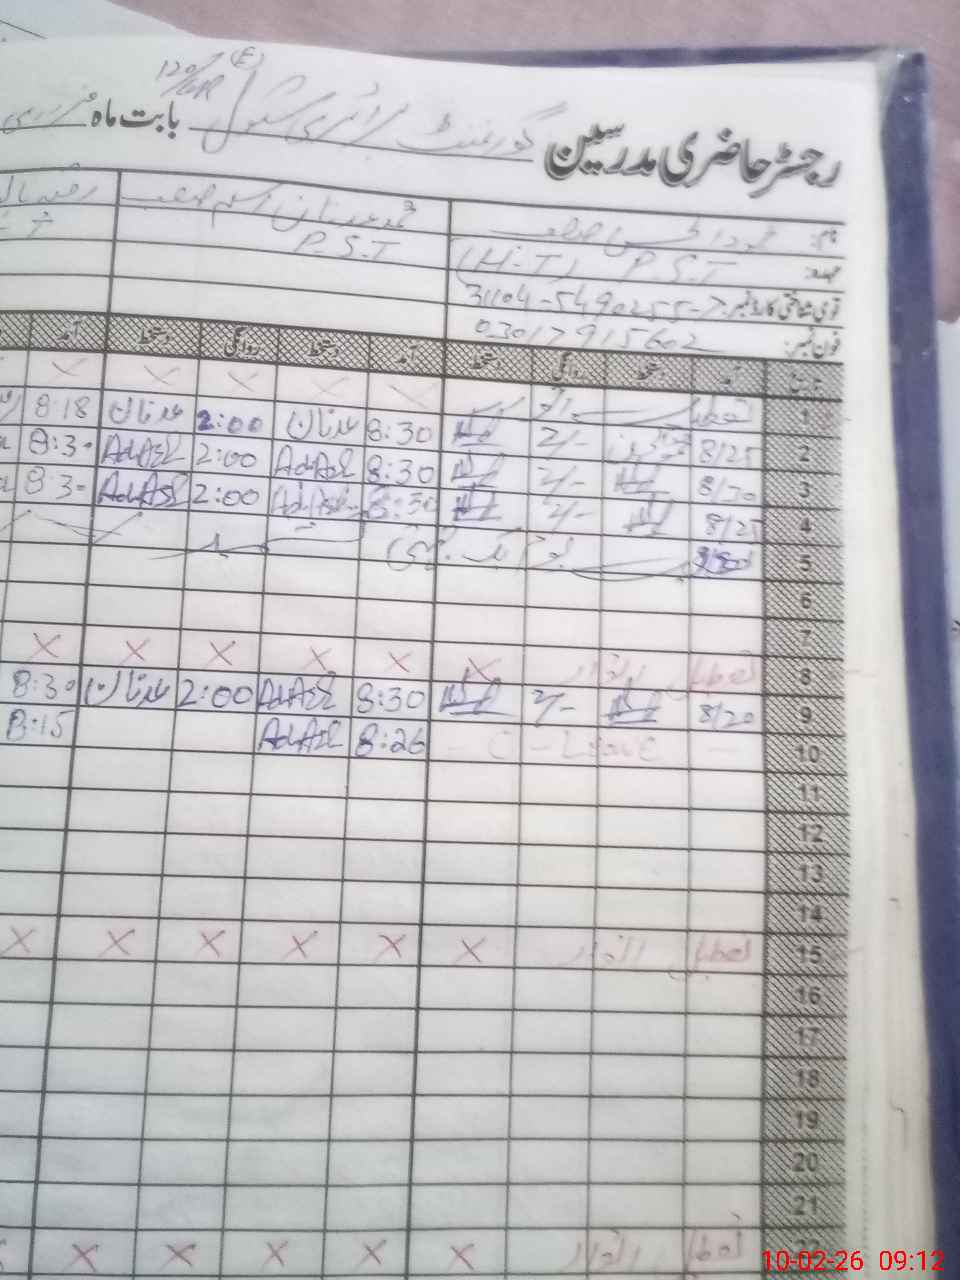 120/GR (E)
رجسٹر حاضری مدرسین گورنمنٹ پرائمری سکول بابت ماہ
نام:
محمد عدنان اسلم صاحب
عہدہ: (H-T) P.S.T
P.S.T
قومی شناختی کارڈ نمبر: 31104-5490255-7
فون نمبر: 03017915602
تاریخ آمد دستخط روانگی دستخط آمد دستخط روانگی دستخط آمد
1 تعطیل اتوار × × × × ×
2 8/25 2/- 8:30 عدنان 2:00 عدنان 8:18
3 8/30 2/- 8:30 AdAsl 2:00 AdAsl 8:30
4 8/25 2/- 8:30 AdAsl 2:00 AdAsl 8:30
5
6
7
8 تعطیل اتوار × × × × × ×
9 8/20 2/- 8:30 AdAsl 2:00 عدنان 8:30
10 - C - Leave - 8:26 AdAsl 8:15
11
12
13
14
15 تعطیل اتوار × × × × × ×
16
17
18
19
20
21
22 تعطیل اتوار × × × × ×
10-02-26 09:12